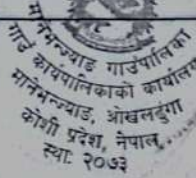 मानेभञ्ज्याङ गाउँपालिका
गाउँ कार्यपालिकाको कार्यालय
मानेभञ्ज्याङ, ओखलढुंगा
कोशी प्रदेश, नेपाल
स्था: २०७३